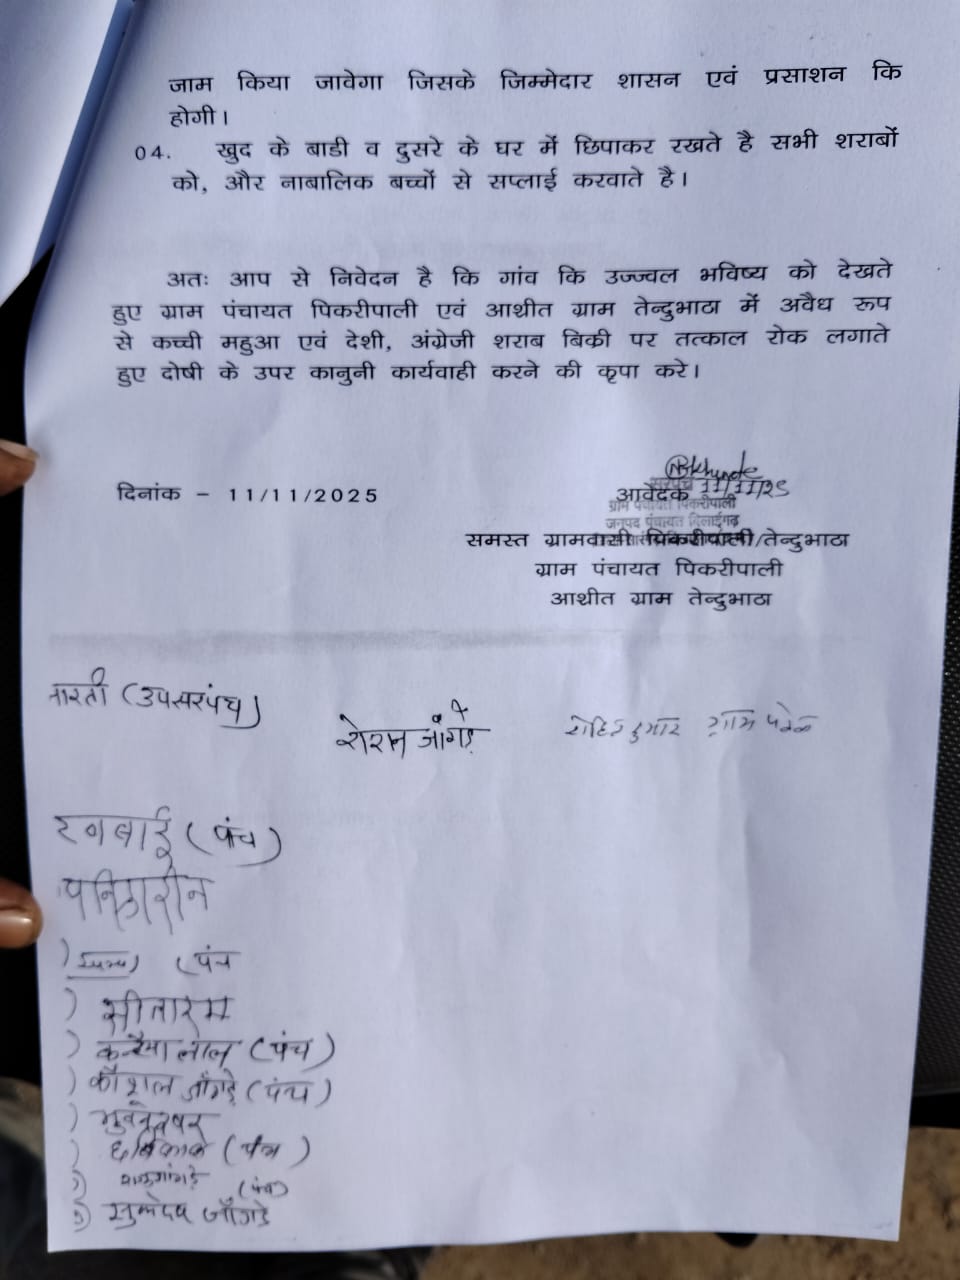 जाम किया जावेगा जिसके जिम्मेदार शासन एवं प्रसाशन कि
होगी।
04. खुद के बाडी व दुसरे के घर में छिपाकर रखते है सभी शराबों
को, और नाबालिक बच्चों से सप्लाई करवाते है।
अतः आप से निवेदन है कि गांव कि उज्ज्वल भविष्य को देखते
हुए ग्राम पंचायत पिकरीपाली एवं आशीत ग्राम तेन्दुभाठा में अवैध रूप
से कच्ची महुआ एवं देशी, अंग्रेजी शराब बिक्री पर तत्काल रोक लगाते
हुए दोषी के उपर कानुनी कार्यवाही करने की कृपा करे।
सरपंच 11/11/25
दिनांक - 11/11/2025 आवेदक
ग्राम पंचायत पिकरीपाली
जनपद पंचायत बिलाईगढ़
समस्त ग्रामवासी पिकरीपाली/तेन्दुभाठा
ग्राम पंचायत पिकरीपाली
आशीत ग्राम तेन्दुभाठा
(उपसरपंच)
जांगड़े
कुमार ग्राम
(पंच)
(पंच
सीताराम
लाल (पंच)
कौशल जाँगड़े (पंच)
भुवनेश्वर
(पंच)
(पंच)
जाँगड़े